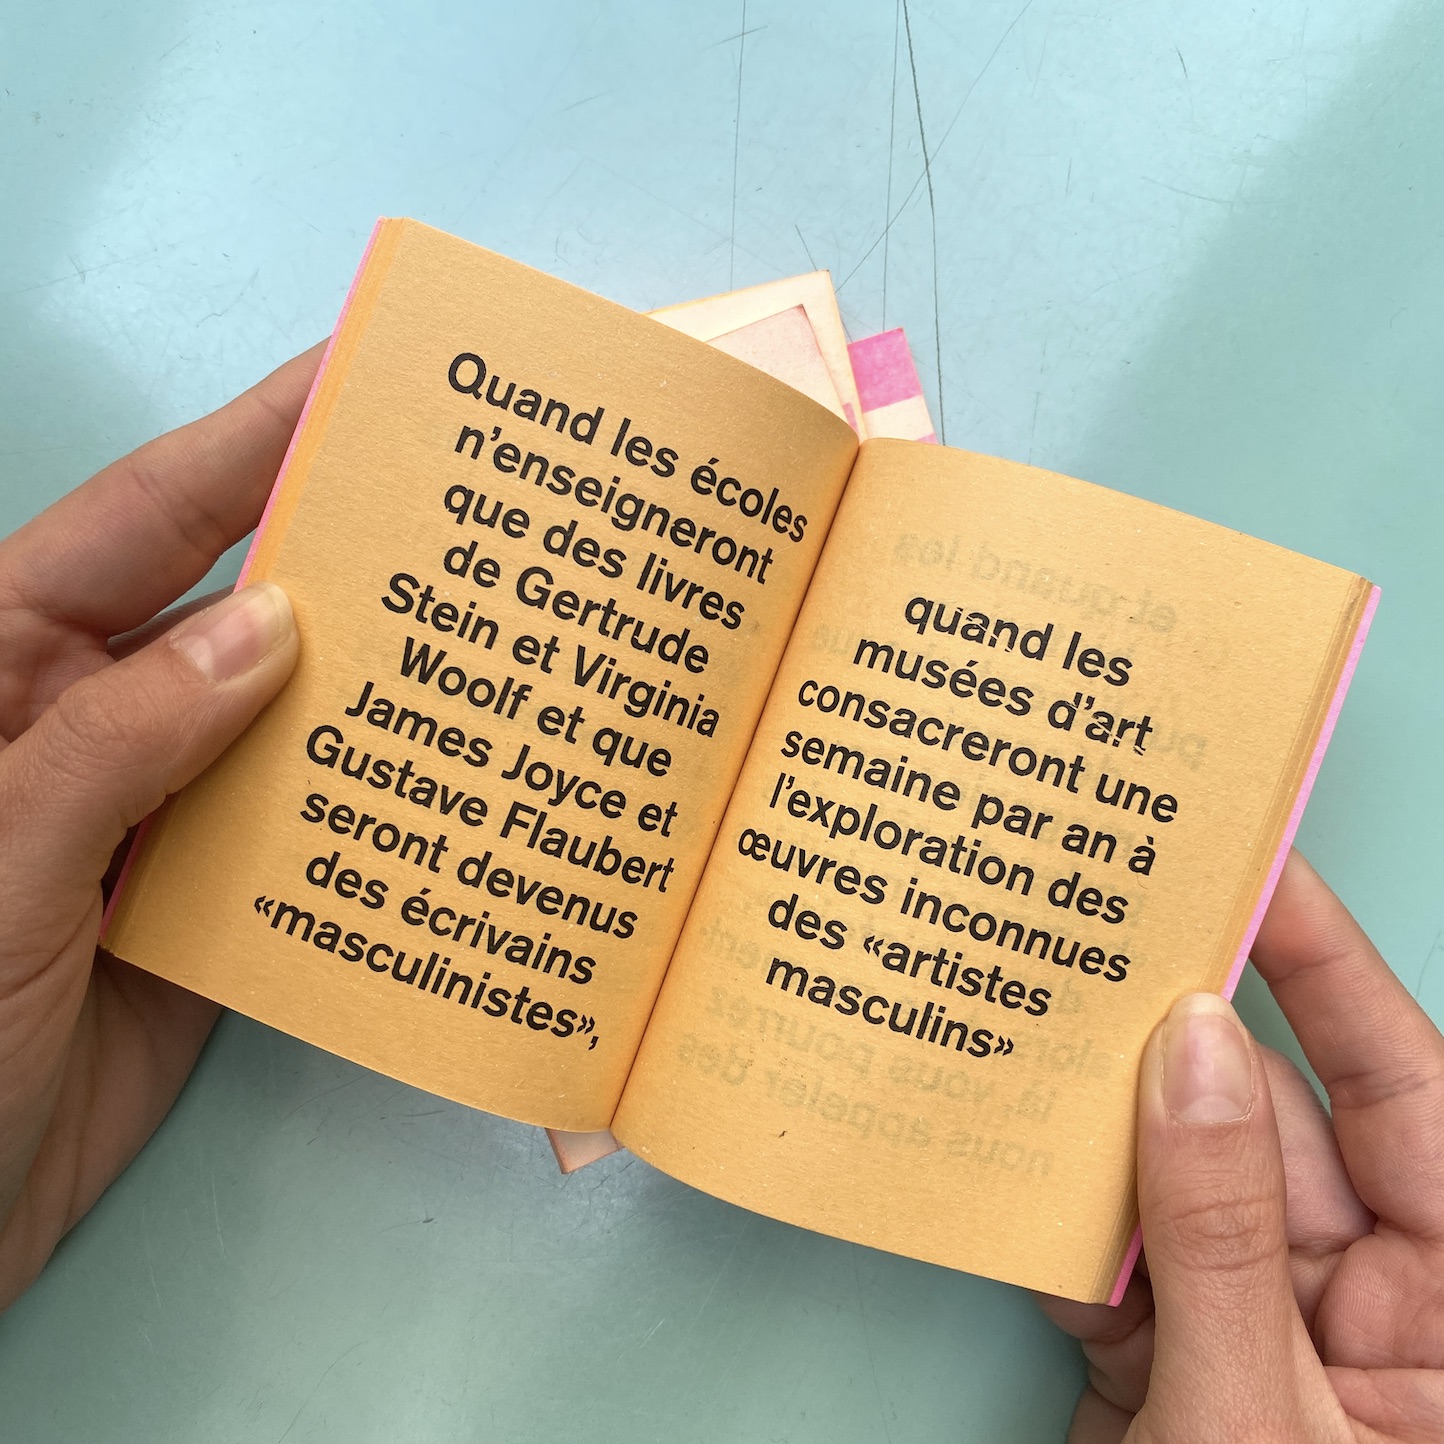 Quand les écoles
n’enseigneront
que des livres
de Gertrude
Stein et Virginia
Woolf et que
James Joyce et
Gustave Flaubert
seront devenus
des écrivains
«masculinistes»,
quand les
musées d’art
consacreront une
semaine par an à
l’exploration des
œuvres inconnues
des «artistes
masculins»